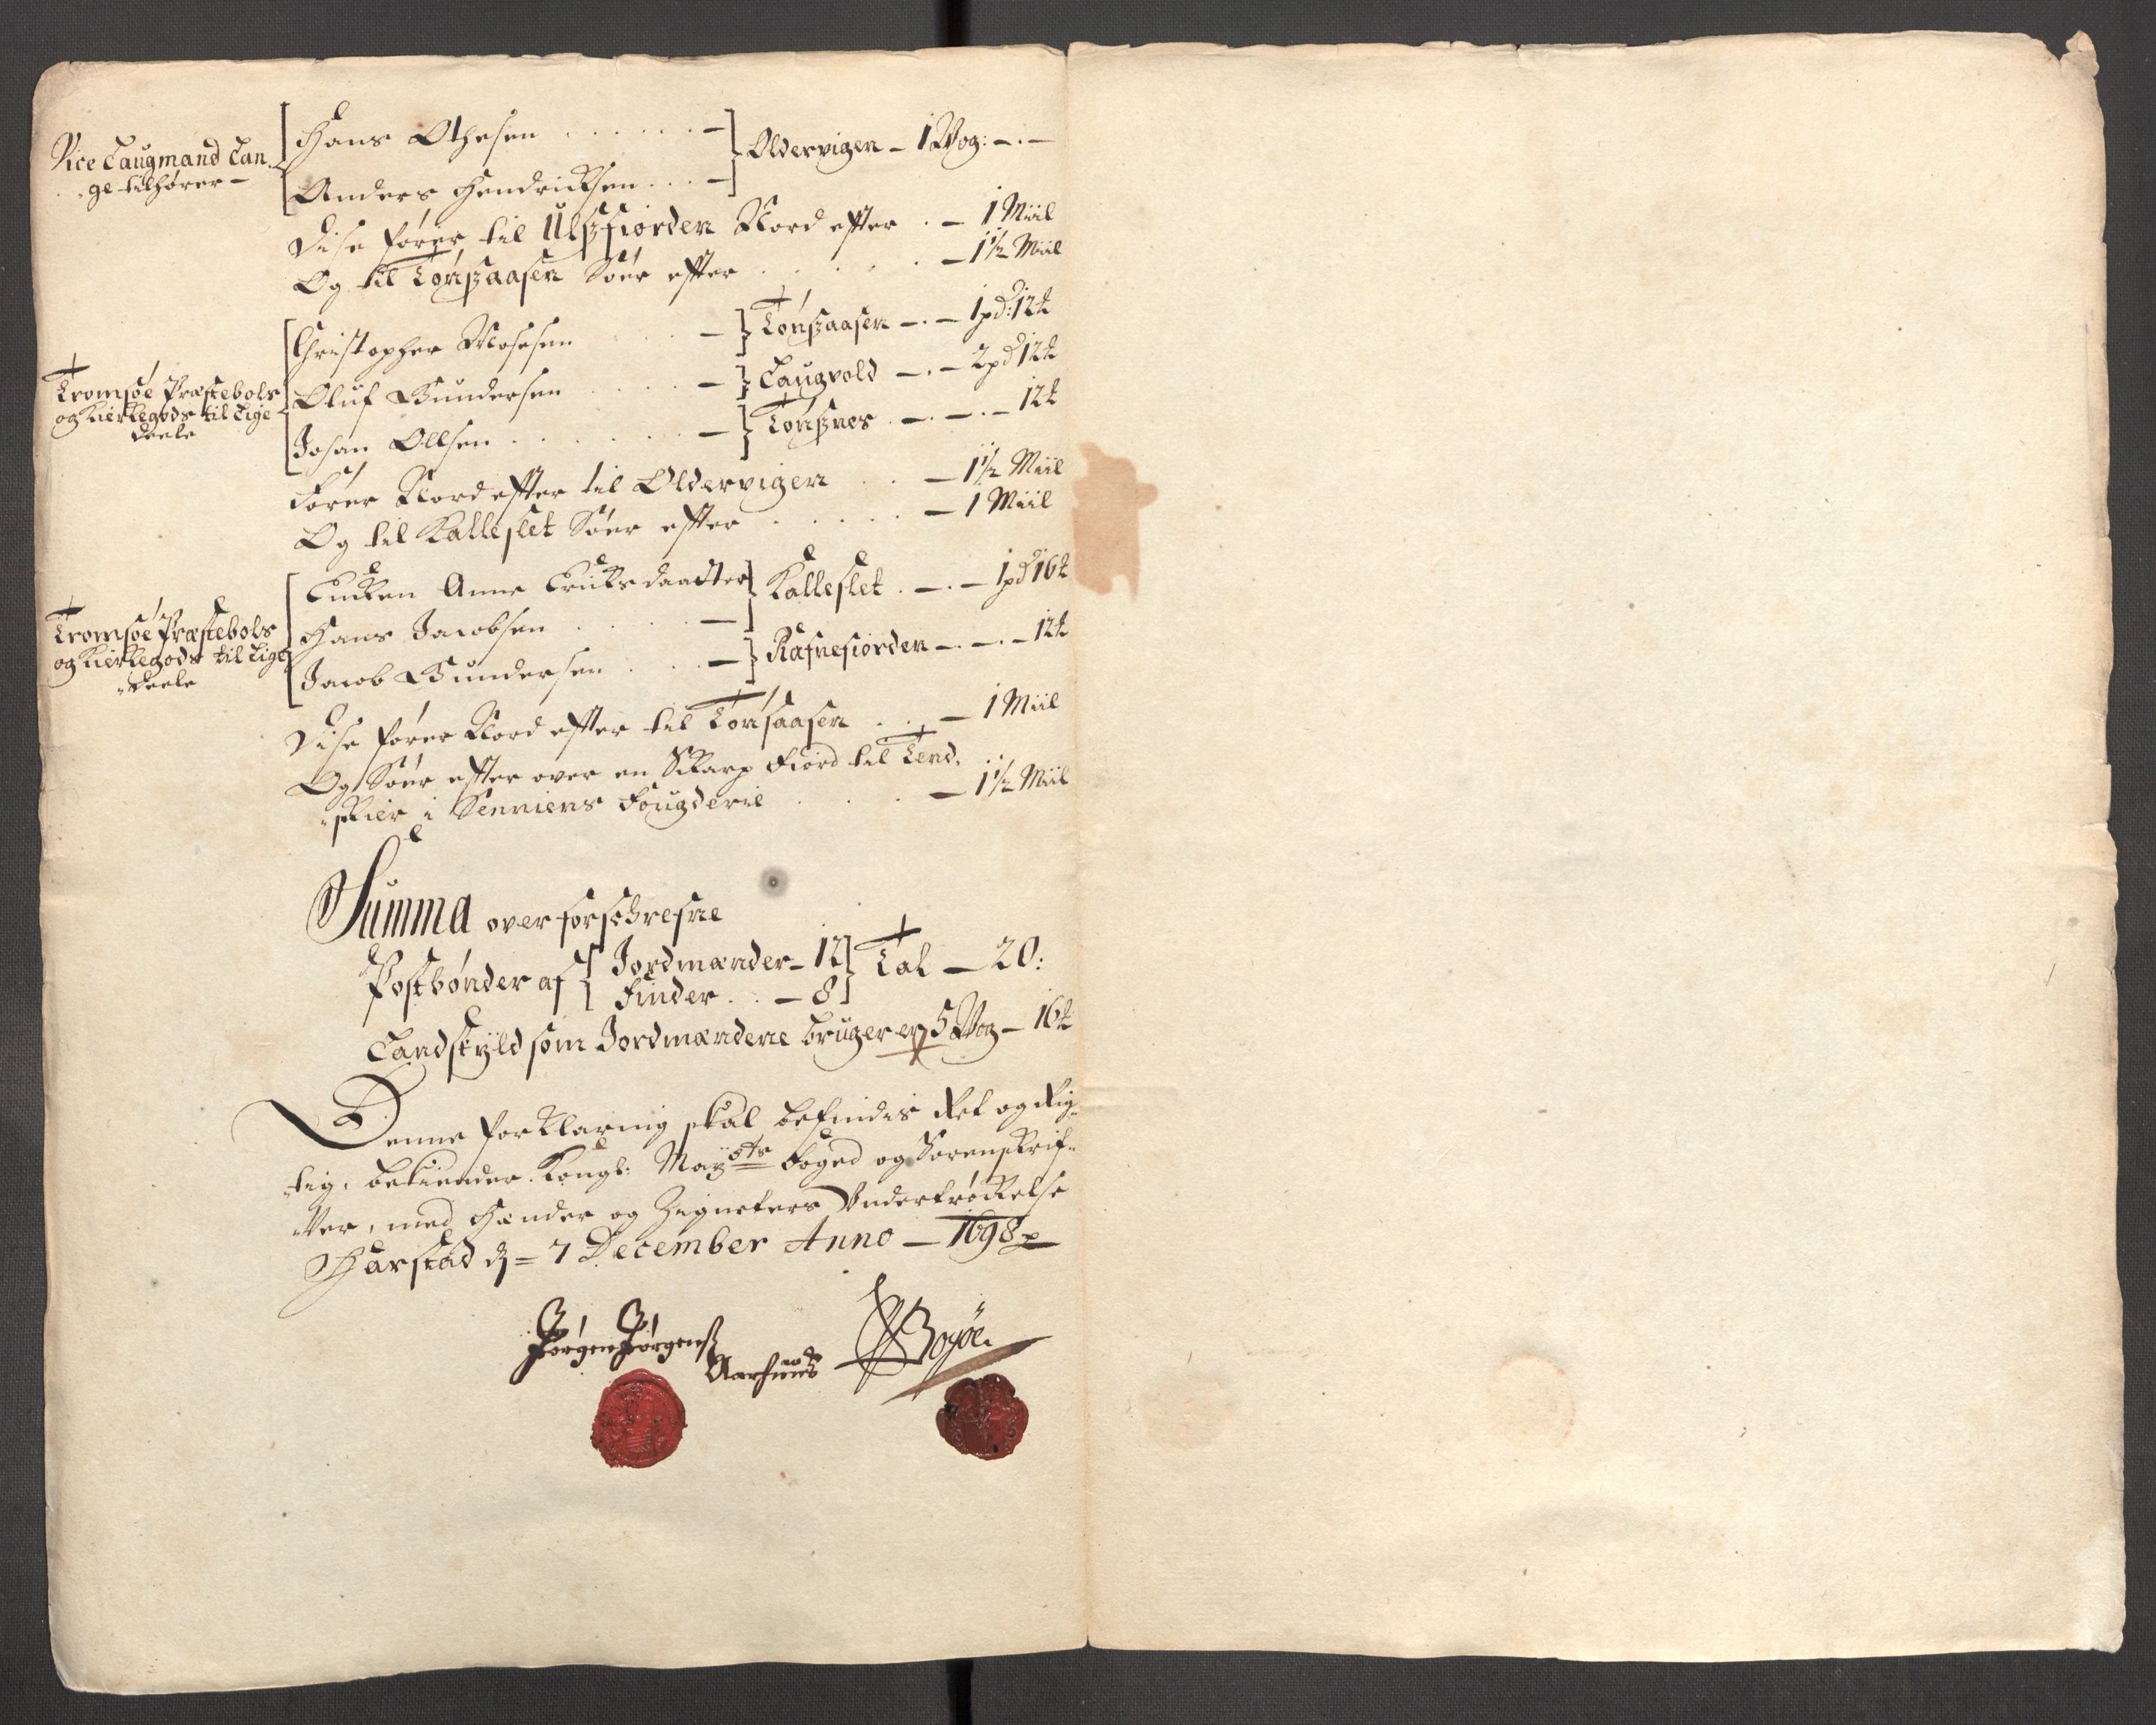 Vice Laugmand Lan-
ge tilhører -
Hans Othesen . . . . . . - Oldervigen - 1 Wog: - . -
Anders Hendricksen . . . -
Dise fører til Ulsfiorden Nord efter . - 1 Miil
Og til Tønsaasen Søer efter . . . . . . - 1½ Miil
Tromsøe Præstebols
og Kierkegods til Lige
deele
Christopher Mosesen . . . - Tønsaasen - . - 1 pd: 12 ℔
Oluf Gundersen . . . . - Laugvold - . - 2 pd 12 ℔
Johan Ollsen . . . . . . . - Tønsnes . - . - . - 12 ℔
Fører Nord efter til Oldervigen . . - 1½ Miil
Og til Kalleslet Søer efter . . . . . - 1 Miil
Tromsøe Præstebols
og Kierkegods til Lige
deele
Encken Anne Ericksdaatter Kalleslet . - . - 1 pd 16 ℔
Hans Jacobsen . . . . . -
Jacob Gundersen . . . - Rafnefiorden - . - . - 12 ℔
Dise fører Nord efter til Tønsaasen . . . - 1 Miil
Og Søer efter over en Skarp Fiord til Tend-
skier i Senniens Fougderie . . . . - 1½ Miil
Summa over forschrefne
Postbønder af Jordmænder - 12 Tal - 20:
Finder . . - 8
Landskyld som Jordmændene bruger er 5 Wog - 16 ℔
Denne forklaring skal befindis Ret og Rig-
tig, bekiender Kongl: Mayets Foged og Sorenskrif-
ver, med Hænder og Zigneters Undertrøckelse
Harstad d = 7 December Anno - 1698
Jørgen Jørgens